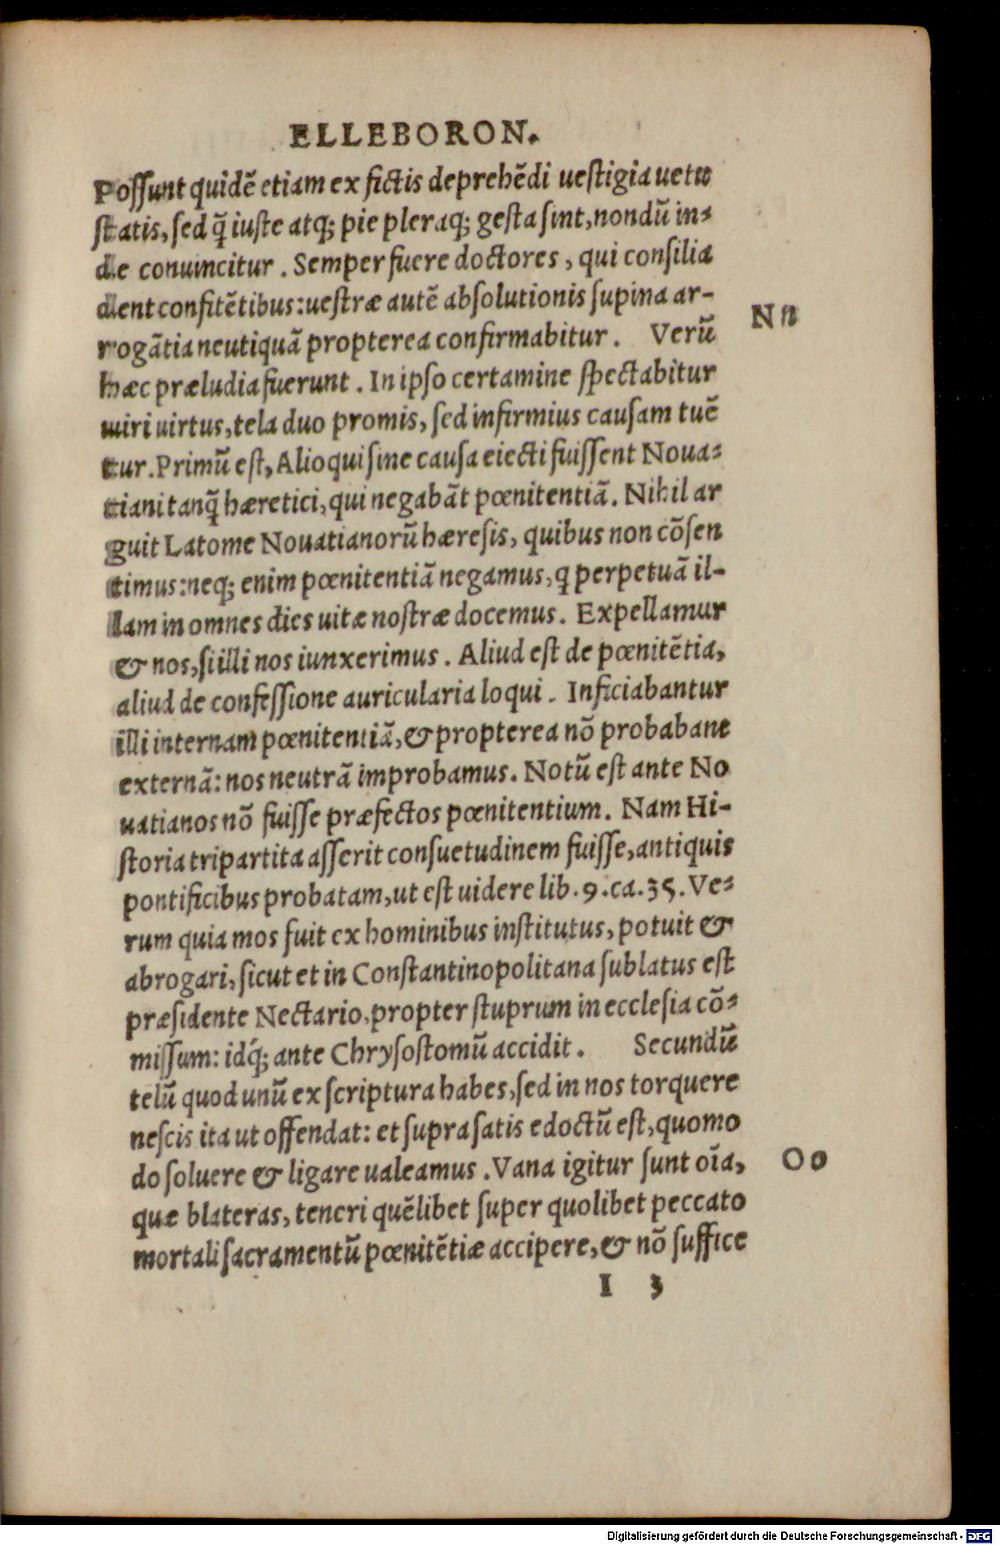 ELLEBORON.
Possunt quidẽ etiam ex fictis deprehẽdi uestigia uetu
statis, sed q̃ iuste atq; pie pleraq; gesta sint, nondũ in-
de conuincitur. Semper fuere doctores, qui consilia
dent confitẽtibus: uestræ autẽ absolutionis supina ar-
rogãtia neutiquã propterea confirmabitur. Verũ
Nn
hæc præludia fuerunt. In ipso certamine spectabitur
uiri uirtus, tela duo promis, sed infirmius causam tuẽ
tur. Primũ est, Alioqui sine causa eiecti fuissent Noua-
tiani tanq̃ hæretici, qui negabãt pœnitentiã. Nihil ar
guit Latome Nouatianorũ hæresis, quibus non cõsen
timus: neq; enim pœnitentiã negamus, q perpetuã il-
lam in omnes dies uitæ nostræ docemus. Expellamur
& nos, si illi nos iunxerimus. Aliud est de pœnitẽtia,
aliud de confessione auricularia loqui. Inficiabantur
illi internam pœnitentiã, & propterea nõ probabant
externã: nos neutrã improbamus. Notũ est ante No
uatianos nõ fuisse præfectos pœnitentium. Nam Hi-
storia tripartita asserit consuetudinem fuisse, antiquis
pontificibus probatam, ut est uidere lib. 9. ca. 35. Ve-
rum quia mos fuit ex hominibus institutus, potuit &
abrogari, sicut et in Constantinopolitana sublatus est
præsidente Nectario, propter stuprum in ecclesia cõ-
missum: idq́; ante Chrysostomũ accidit. Secundũ
telũ quod unũ ex scriptura habes, sed in nos torquere
nescis ita ut offendat: et supra satis edoctũ est, quomo
do soluere & ligare ualeamus. Vana igitur sunt oĩa,
Oo
quæ blateras, teneri quẽlibet super quolibet peccato
mortali sacramentũ pœnitẽtiæ accipere, & nõ suffice
I 3
Digitalisierung gefördert durch die Deutsche Forschungsgemeinschaft - DFG